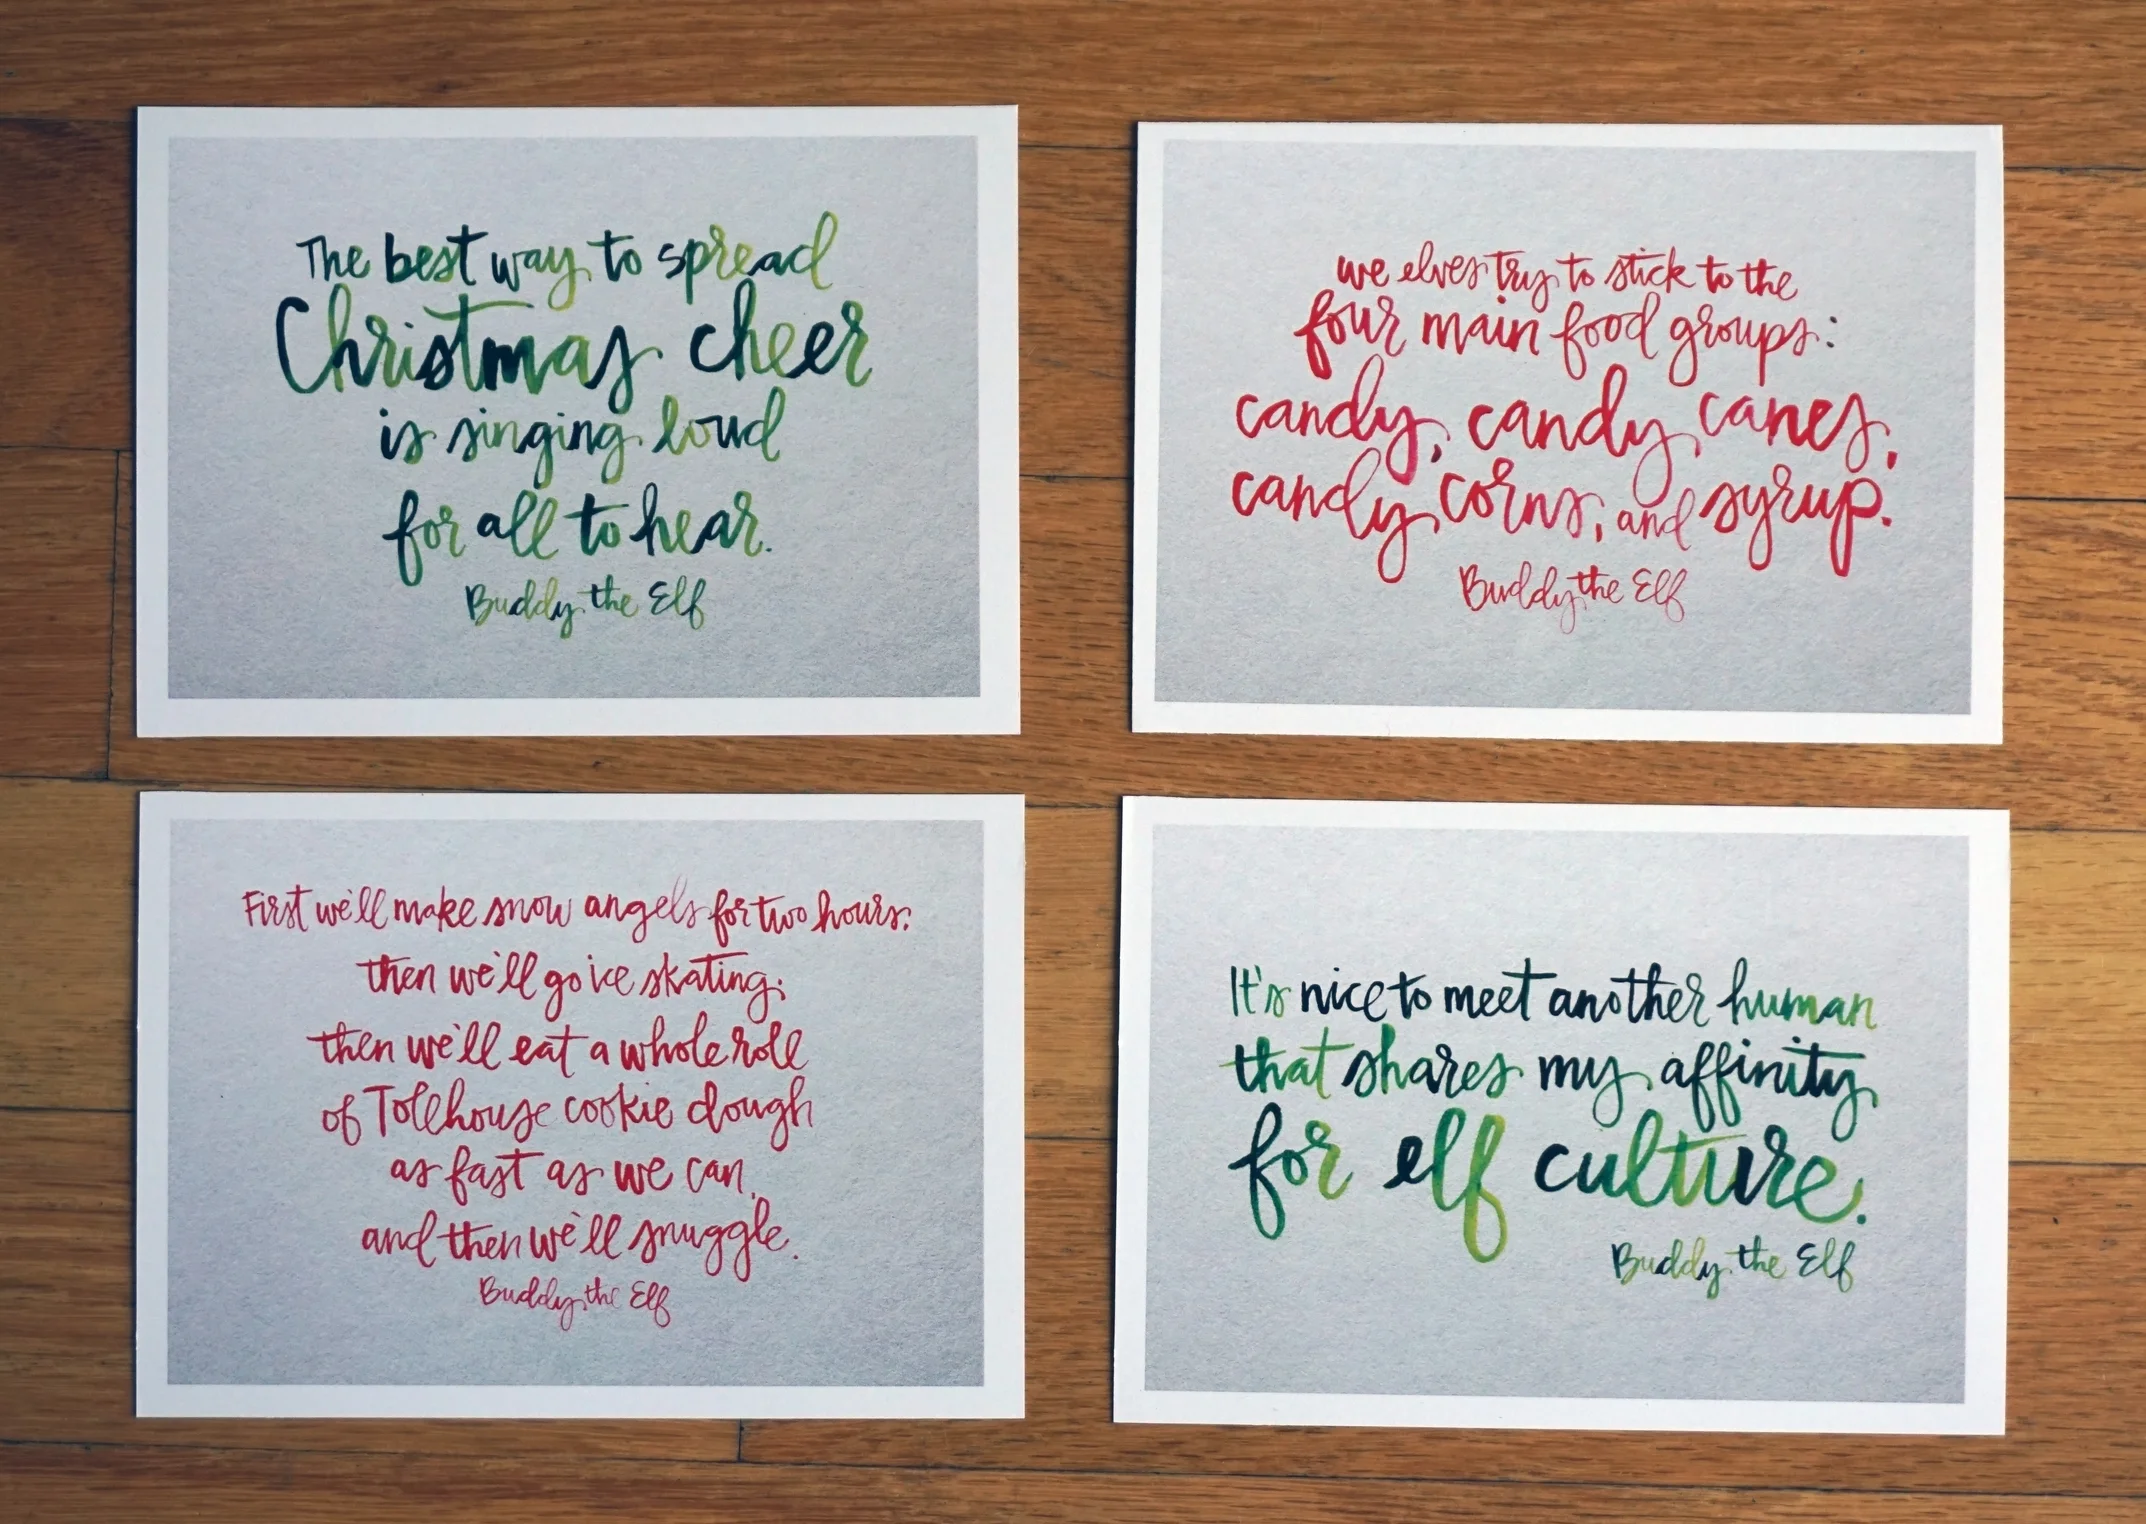 The best way to spread
Christmas cheer
is singing loud
for all to hear.
Buddy the Elf
we elves try to stick to the
four main food groups:
candy, candy canes,
candy corns, and syrup.
Buddy the Elf
First we'll make snow angels for two hours;
then we'll go ice skating;
then we'll eat a whole roll
of Tollhouse cookie dough
as fast as we can,
and then we'll snuggle.
Buddy the Elf
It's nice to meet another human
that shares my affinity
for elf culture.
Buddy the Elf